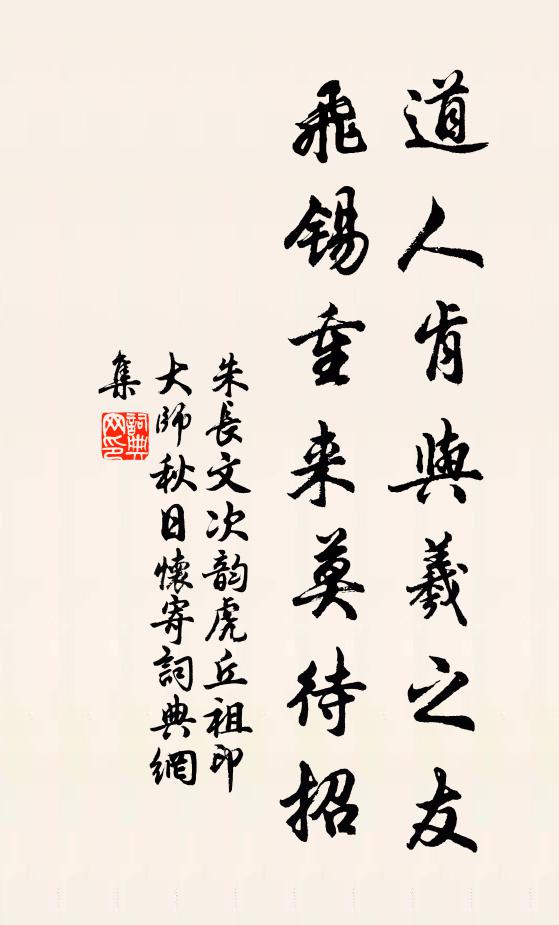 道人肯與羲之友
飛錫重来莫待招
朱長文次韵虎丘祖印
大師秋日懷寄詞典網
集
詞典網印